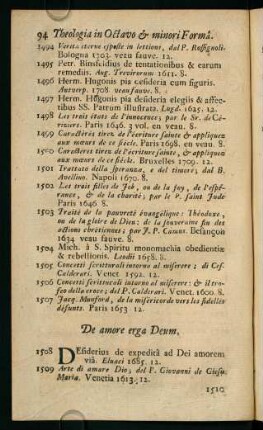 94 Theologia in Octavo & minori Formâ.
1494 Verità eterne esposte in lettioni, dal P. Rossignoli.
Bologna 1703. veau fauve. 12.
1495 Petr. Binsfeldius de tentationibus & earum
remediis. Aug. Trevirorum 1611. 8.
1496 Herm. Hugonis pia desideria cum figuris.
Antuerp. 1708. veau fauv. 8.
1497 Herm. Hugonis pia desideria elegiis & affec-
tibus SS. Patrum illustrata. Lugd. 1625. 12.
1498 Les trois états de l'innocence; par le Sr. de Cé-
riziers. Paris 1646. 3 vol. en veau. 8.
1499 Caractéres tirez de l'écriture sainte & appliquez
aux mœurs de ce siécle. Paris 1698. en veau. 8.
1500 Caractéres tirez de l'écriture sainte, & appliquez
aux mœurs de ce siécle. Bruxelles 1709. 12.
1501 Trattato della speranza, e del timore; dal B.
Avellino. Napoli 1670. 8.
1502 Les trois filles de Job, ou de la foy, de l'espé-
rance, & de la charité; par le P. saint Jude
Paris 1646 8.
1503 Traité de la pauvreté évangélique: Théodoxe,
ou de la gloire de Dieu: de la souveraine fin des
actions chrêtiennes; par J. P. Camus. Besançon
1634 veau fauve. 8.
1504 Mich. à S. Spiritu monomachia obedientiæ
& rebellionis. Leodii 1658. 8.
1505 Concetti scritturali intorno al miserere; di Ces.
Calderari. Venet. 1590. 12.
1506 Concetti scritturali intorno al miserere: & il tro-
feo della croce; del P. Calderari. Venet. 1600. 8.
1507 Jacq. Munford, de la miséricorde vers les fidelles
défunts. Paris 1653 12.
De amore erga Deum.
1508 DEsiderius de expedita ad Dei amorem
via. Elnaci 1685. 12.
1509 Arte di amare Dio, del P. Giovanni de Giesu
Maria. Venetia 1613. 12.
1510